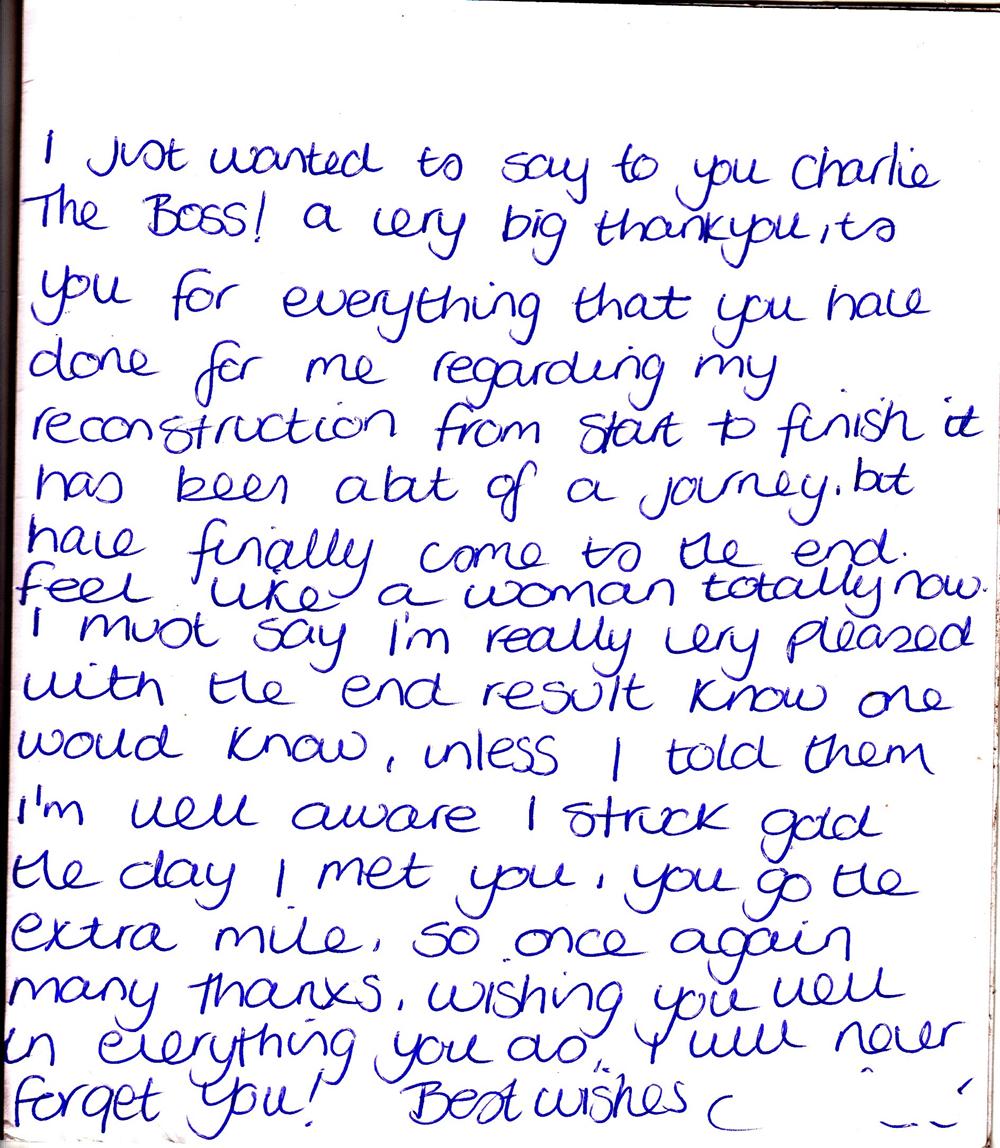 I just wanted to say to you Charlie
The Boss! a very big thankyou, to
you for everything that you have
done for me regarding my
reconstruction from start to finish it
has been abit of a journey. but
have finally come to the end.
feel like a woman totally now.
I must say I'm really very pleased
with the end result know one
would know, unless I told them
I'm well aware I struck gold
the day I met you, you go the
extra mile, so once again
many thanks. wishing you well
in everything you do, I will never
forget you! Best wishes